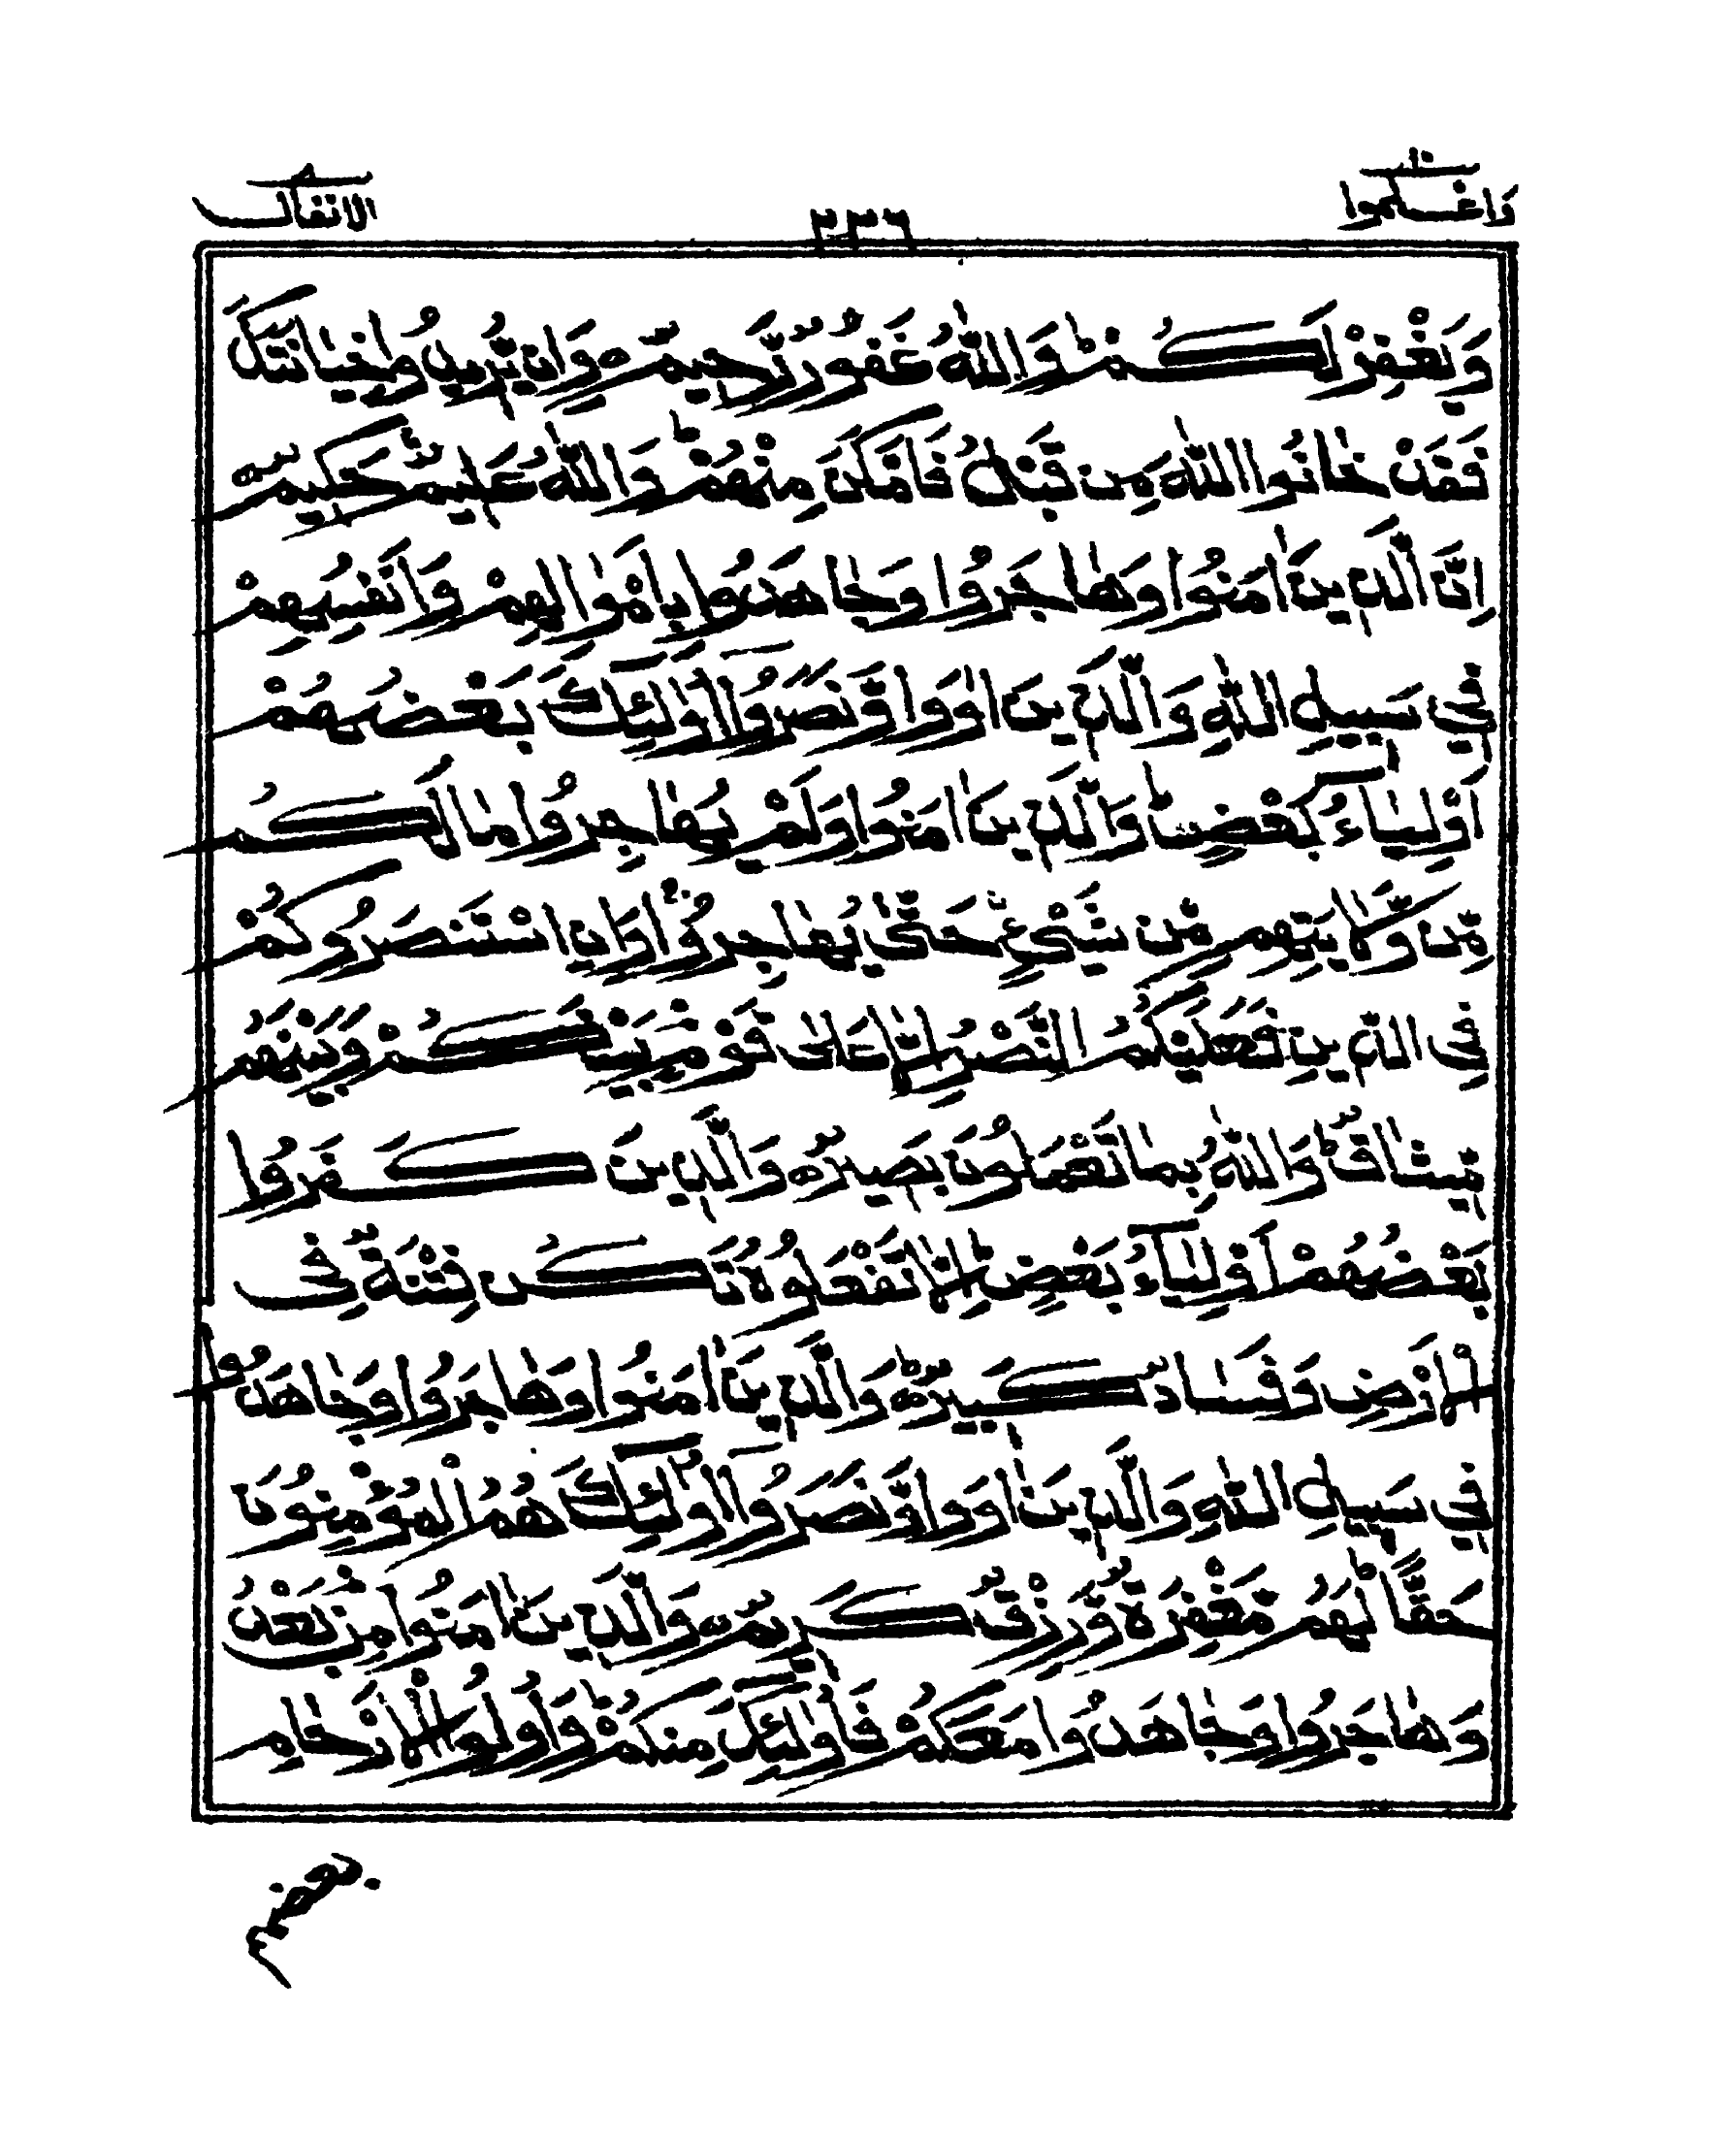 واعلموا ٢٣٦ الانفال
وَيَغْفِرْ لَكُمْ وَاللّٰهُ غَفُوْرٌ رَّحِيْمٌ وَاِنْ يُّرِيْدُوْا خِيَانَتَكَ
فَقَدْ خَانُوا اللّٰهَ مِنْ قَبْلُ فَاَمْكَنَ مِنْهُمْ وَاللّٰهُ عَلِيْمٌ حَكِيْمٌ
اِنَّ الَّذِيْنَ اٰمَنُوْا وَهَاجَرُوْا وَجَاهَدُوْا بِاَمْوَالِهِمْ وَاَنْفُسِهِمْ
فِيْ سَبِيْلِ اللّٰهِ وَالَّذِيْنَ اٰوَوْا وَّنَصَرُوْٓا اُولٰٓئِكَ بَعْضُهُمْ
اَوْلِيَآءُ بَعْضٍ وَالَّذِيْنَ اٰمَنُوْا وَلَمْ يُهَاجِرُوْا مَا لَكُمْ
مِّنْ وَّلَايَتِهِمْ مِّنْ شَيْءٍ حَتّٰى يُهَاجِرُوْا وَاِنِ اسْتَنْصَرُوْكُمْ
فِى الدِّيْنِ فَعَلَيْكُمُ النَّصْرُ اِلَّا عَلٰى قَوْمٍ بَيْنَكُمْ وَبَيْنَهُمْ
مِّيْثَاقٌ وَاللّٰهُ بِمَا تَعْمَلُوْنَ بَصِيْرٌ وَالَّذِيْنَ كَفَرُوْا
بَعْضُهُمْ اَوْلِيَآءُ بَعْضٍ اِلَّا تَفْعَلُوْهُ تَكُنْ فِتْنَةٌ فِى
الْاَرْضِ وَفَسَادٌ كَبِيْرٌ وَالَّذِيْنَ اٰمَنُوْا وَهَاجَرُوْا وَجَاهَدُوْا
فِيْ سَبِيْلِ اللّٰهِ وَالَّذِيْنَ اٰوَوْا وَّنَصَرُوْٓا اُولٰٓئِكَ هُمُ الْمُؤْمِنُوْنَ
حَقًّا لَهُمْ مَّغْفِرَةٌ وَّرِزْقٌ كَرِيْمٌ وَالَّذِيْنَ اٰمَنُوْا مِنْ بَعْدُ
وَهَاجَرُوْا وَجَاهَدُوْا مَعَكُمْ فَاُولٰٓئِكَ مِنْكُمْ وَاُولُوا الْاَرْحَامِ
بعضهم